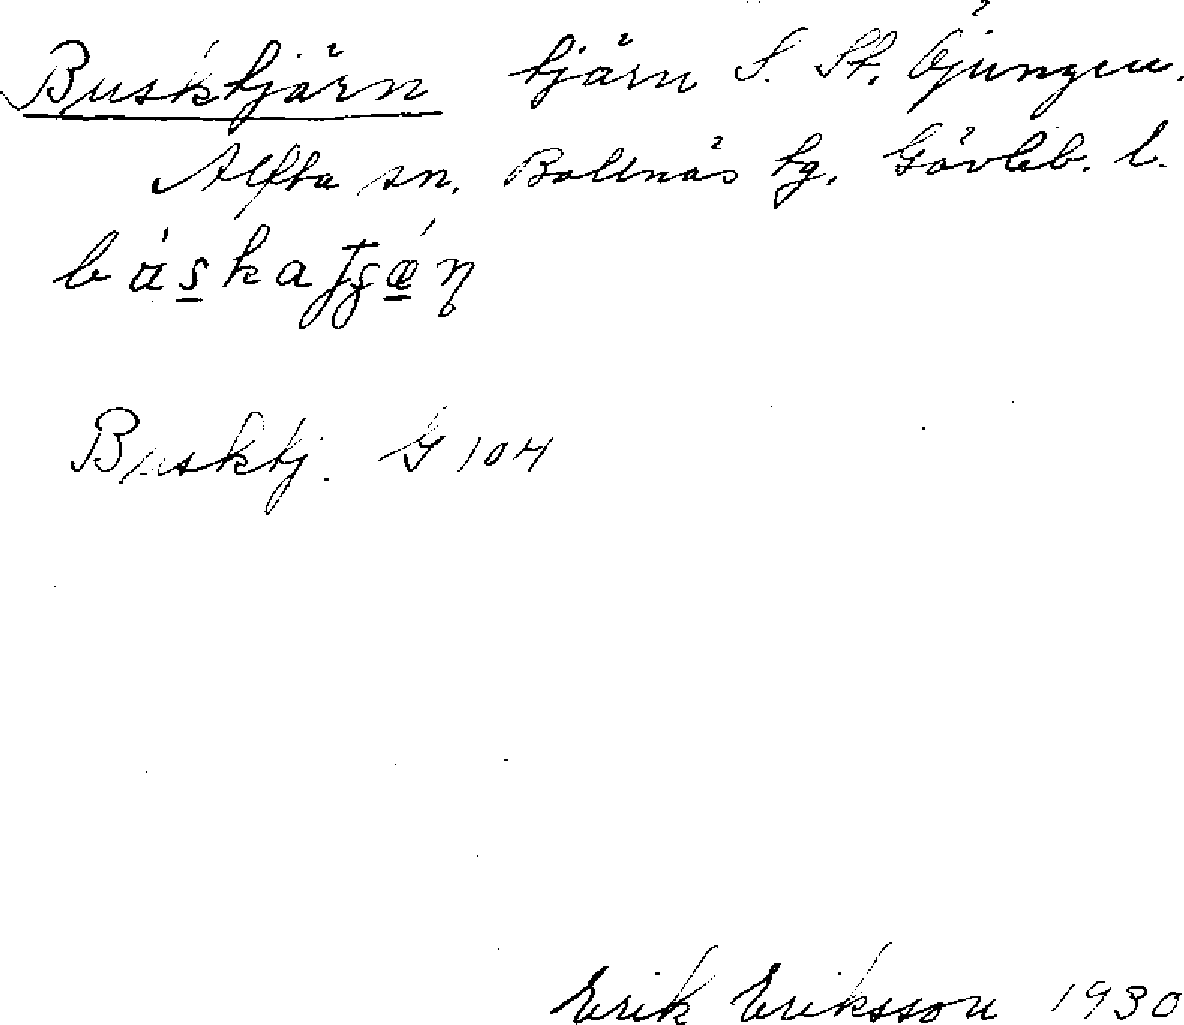 Busktjärn tjärn S. St. Öjungen.
Alfta sn. Bollnäs tg. Gävleb. l.
Busktj. G 104
Erik Eriksson 1930